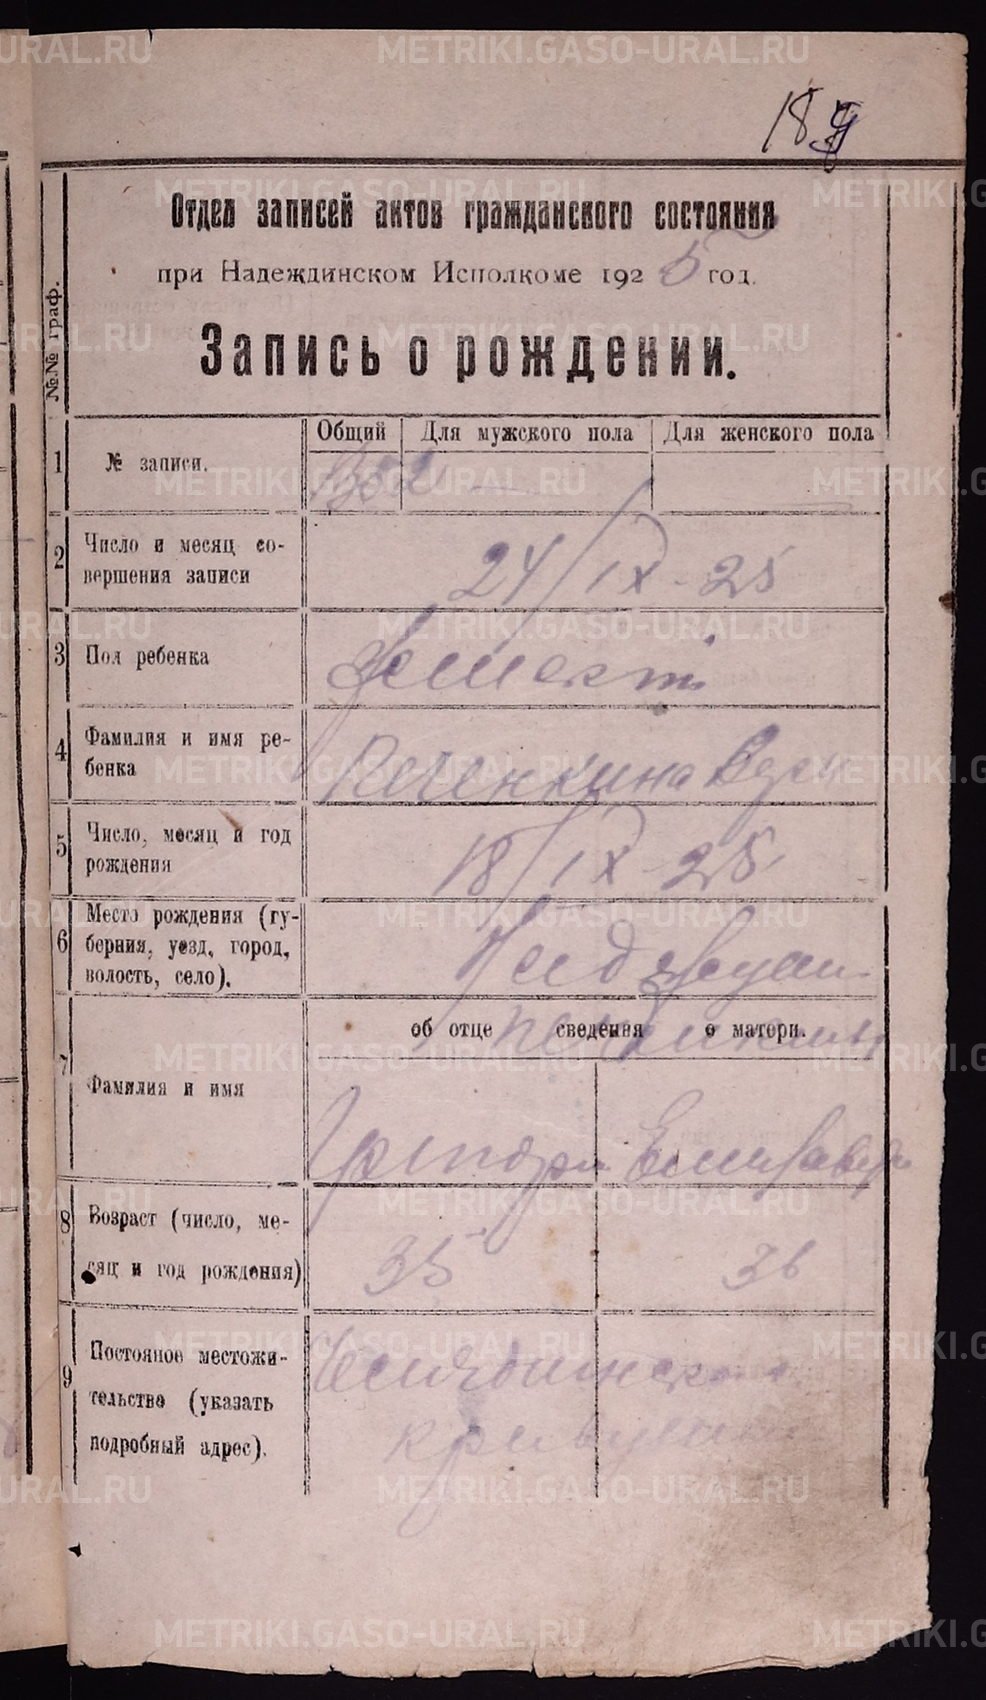 METRIKI.GASO-URAL.RU
Отдел записей актов гражданского состояния
при Надеждинском Исполкоме 1925 год.
Запись о рождении.
№№ граф.
Общий Для мужского пола Для женского пола
1 № записи.
2 Число и месяц со-
вершения записи
24/IX-25
3 Пол ребенка
Женский
4 Фамилия и имя ре-
бенка
Печенкина Вера
5 Число, месяц и год
рождения
18/IX-25
6 Место рождения (гу-
берния, уезд, город,
волость, село).
об отце сведения о матери.
7 Фамилия и имя
Григорий
8 Возраст (число, ме-
сяц и год рождения)
35 36
9 Постояное местожи-
тельство (указать
подробный адрес).